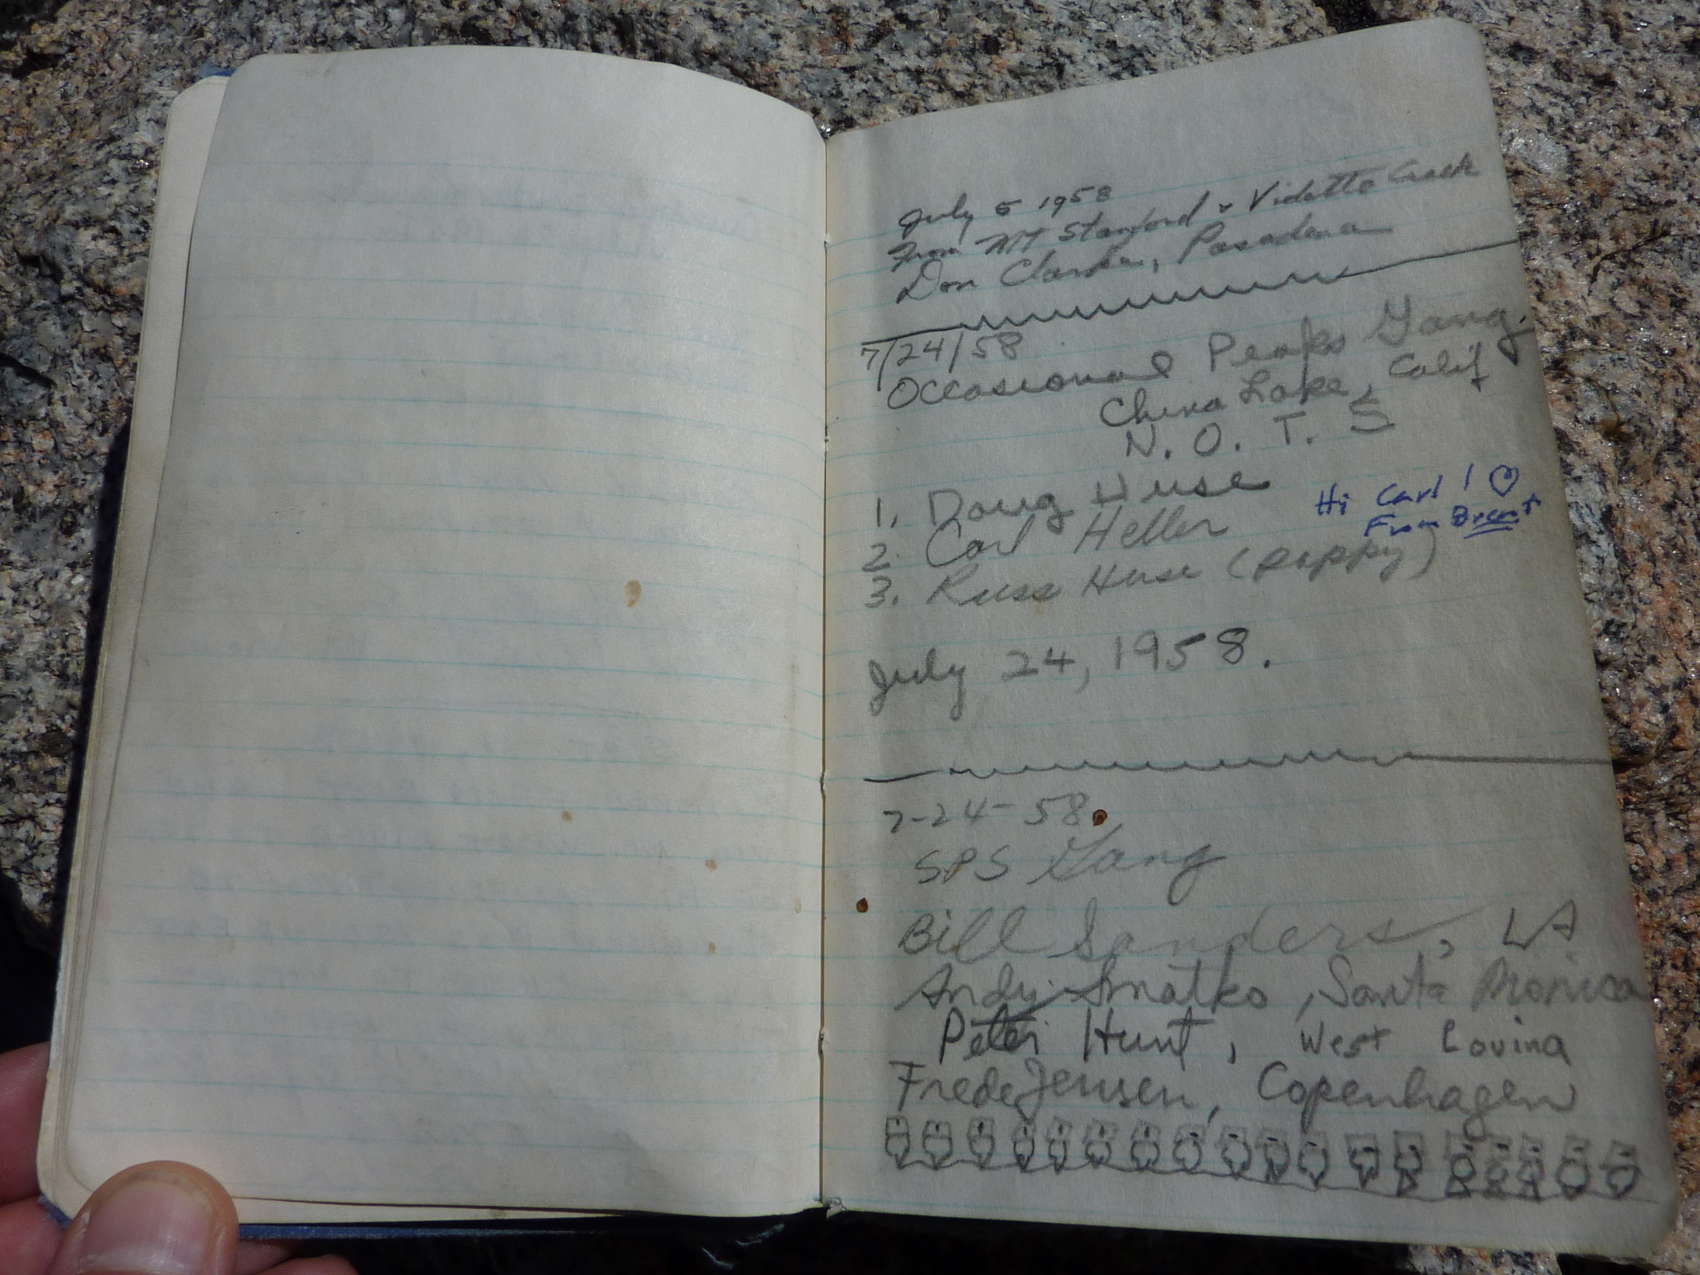 July 5 1958
From Mt Stanford & Vidette Creek
Don Clarke, Pasadena
7/24/58
Occasional Peaks Gang.
China Lake, Calif
N. O. T. S
1. Doug Huse
2. Carl Heller
3. Russ Huse (pappy)
Hi Carl! ♡
From Brent
July 24, 1958.
7-24-58.
SPS Gang
Bill Sanders, LA
Andy Smatko, Santa Monica
Peter Hunt, West Covina
Frede Jensen, Copenhagen